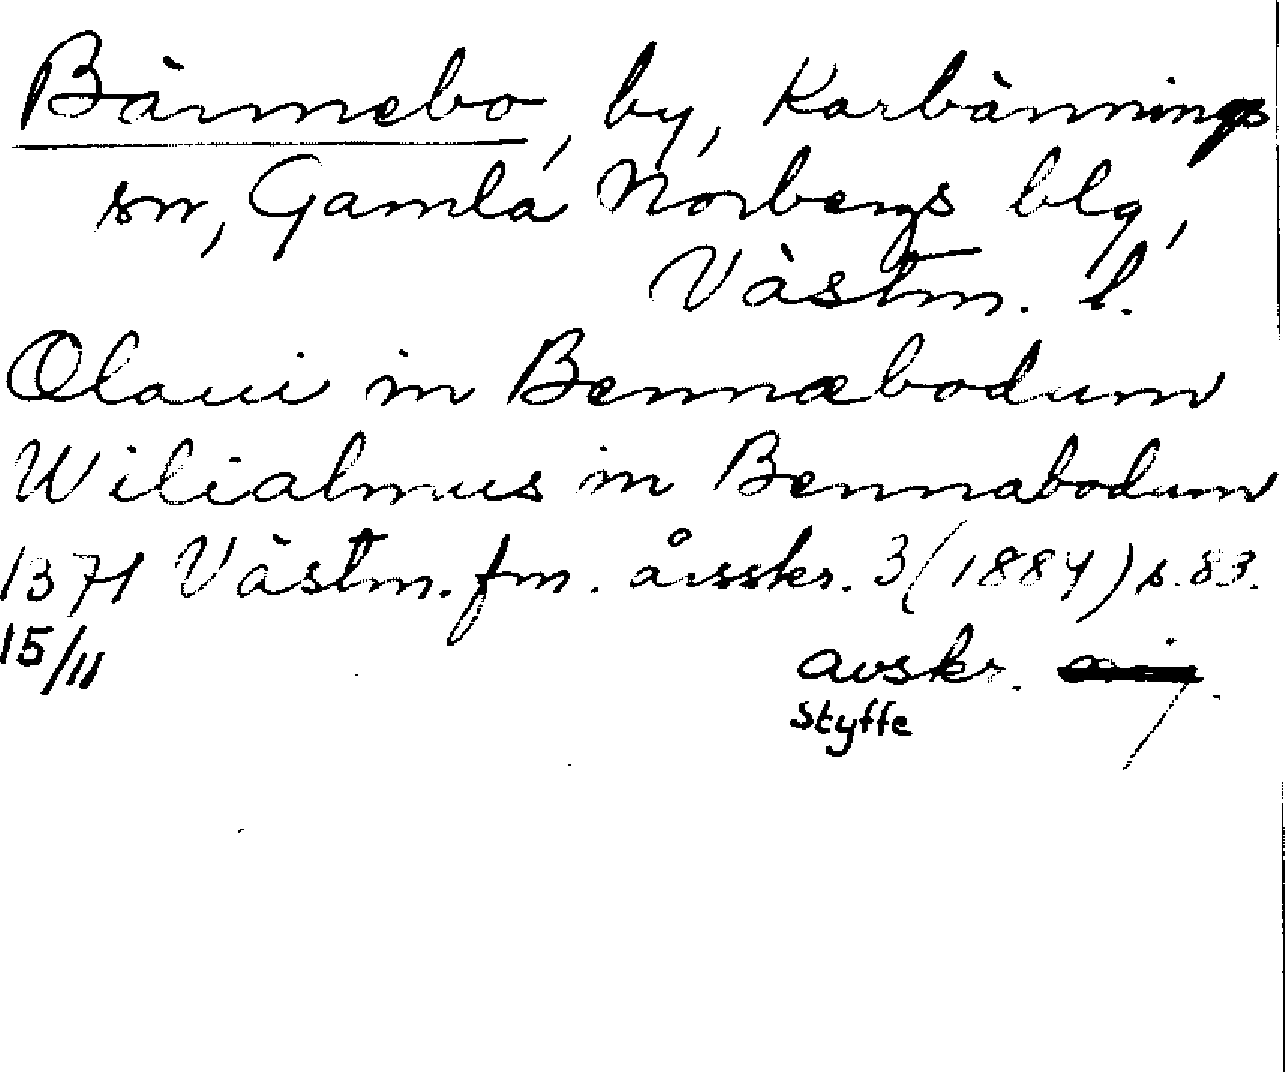 Bännebo, by, Karbännings
sn, Gamla Norbergs blg,
Västm. l.
Olaui in Bennæbodum
Wilialmus in Bennabodum
1371 Västm. fm. årsskr. 3 (1884) s. 83.
15/11 avskr.
Styffe